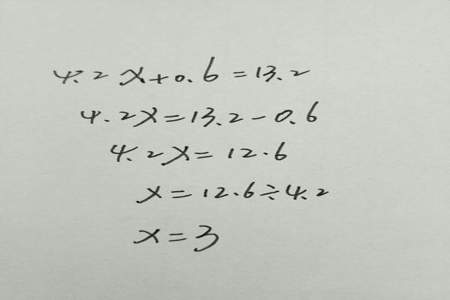 4.2x+0.6=13.2
4.2x=13.2-0.6
4.2x=12.6
x=12.6÷4.2
x=3